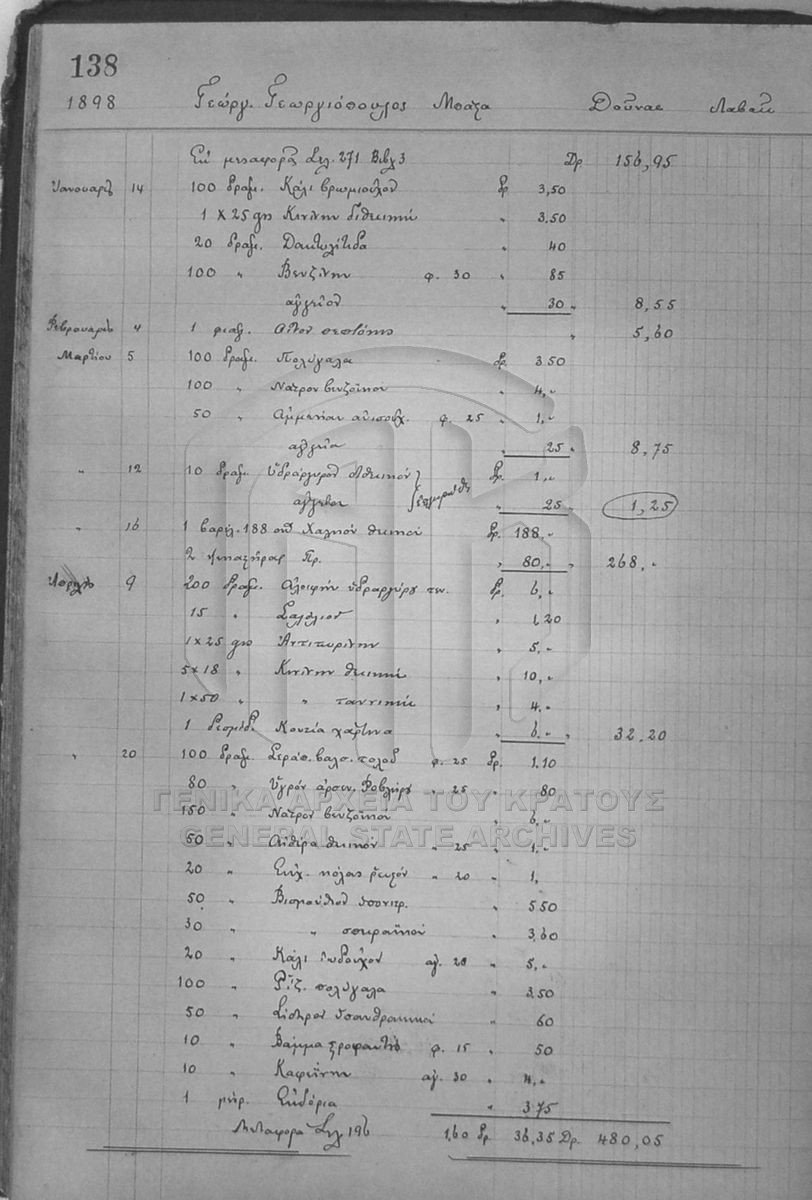 138
1898 Γεώργ. Γεωργιόπουλος Μπάζα Δοῦναι Λαβεῖν
Ἐκ μεταφορᾶς Σελ. 271 Βιβλ 3 Δρ. 156,95
Ἰανουαρίου 14 100 δραμ. Κάλι βρωμιοῦχον δρ 3,50
1 x 25 gro Κινίνην διθειικήν " 3.50
20 δραμ. Δακτυλίτιδα " 40
100 " Βενζίνην φ. 30 " 85
ἀγγεῖον " 30 " 8,55
Φεβρουαρίου 4 1 φιαλ. " 5,60
Μαρτίου 5 100 δραμ. Πολύγαλα δρ. 3 50
100 " Νάτρον βενζοϊκόν " 4,"
50 " Ἀμμωνίαν ἀνισοῦχ. φ. 25 " 1,"
ἀγγεῖα " 25 " 8,75
" 12 10 δραμ. Ὑδράργυρον δρ. 1,"
ἀγγεῖον " 25 " 1,25
" 16 1 βαρέλ. 188 ὀκ Χαλκόν θειικόν δρ. 188,"
2 Πρ. " 80," " 268,"
Ἀπριλίου 9 200 δραμ. Ἀλοιφήν ὑδραργύρου δρ. 6,"
15 " Σαλόλιον " 1,20
1 x 25 gro Ἀντιπυρίνην " 5,"
5 x 18 " Κινίνην θειικήν " 10,"
1 x 50 " " ταννικήν " 4,"
1 δεσμίδ. Κουτία χάρτινα " 6," " 32,20
" 20 100 δραμ. Σιρόπ. βαλσ. τολού φ. 25 δρ. 1.10
80 " Ὑγρόν ἀρσεν. Φοβλήρου " 25 " 80
150 " Νάτρον βενζοϊκόν " 6,"
50 " Αἰθέρα θειικόν " 25 " 1,"
20 " Ἐκχ. κόλας ῥευστόν " 20 " 1,
50 " Βισμούθιον ὑπονιτρ. " 5 50
30 " " " 3,60
20 " Κάλι ἰωδοῦχον ἀγ. 20 " 5,"
100 " Ρίζ. πολύγαλα " 3,50
50 " Σίδηρον ὑπανθρακικόν " 60
10 " Βάμμα στροφάνθου φ. 15 " 50
10 " Καφεΐνην ἀγ. 30 " 4,"
1 " 3 75
Μεταφορά Σελ 196 1,60 δρ. 36,35 Δρ. 480,05
ΓΕΝΙΚΑ ΑΡΧΕΙΑ ΤΟΥ ΚΡΑΤΟΥΣ
GENERAL STATE ARCHIVES